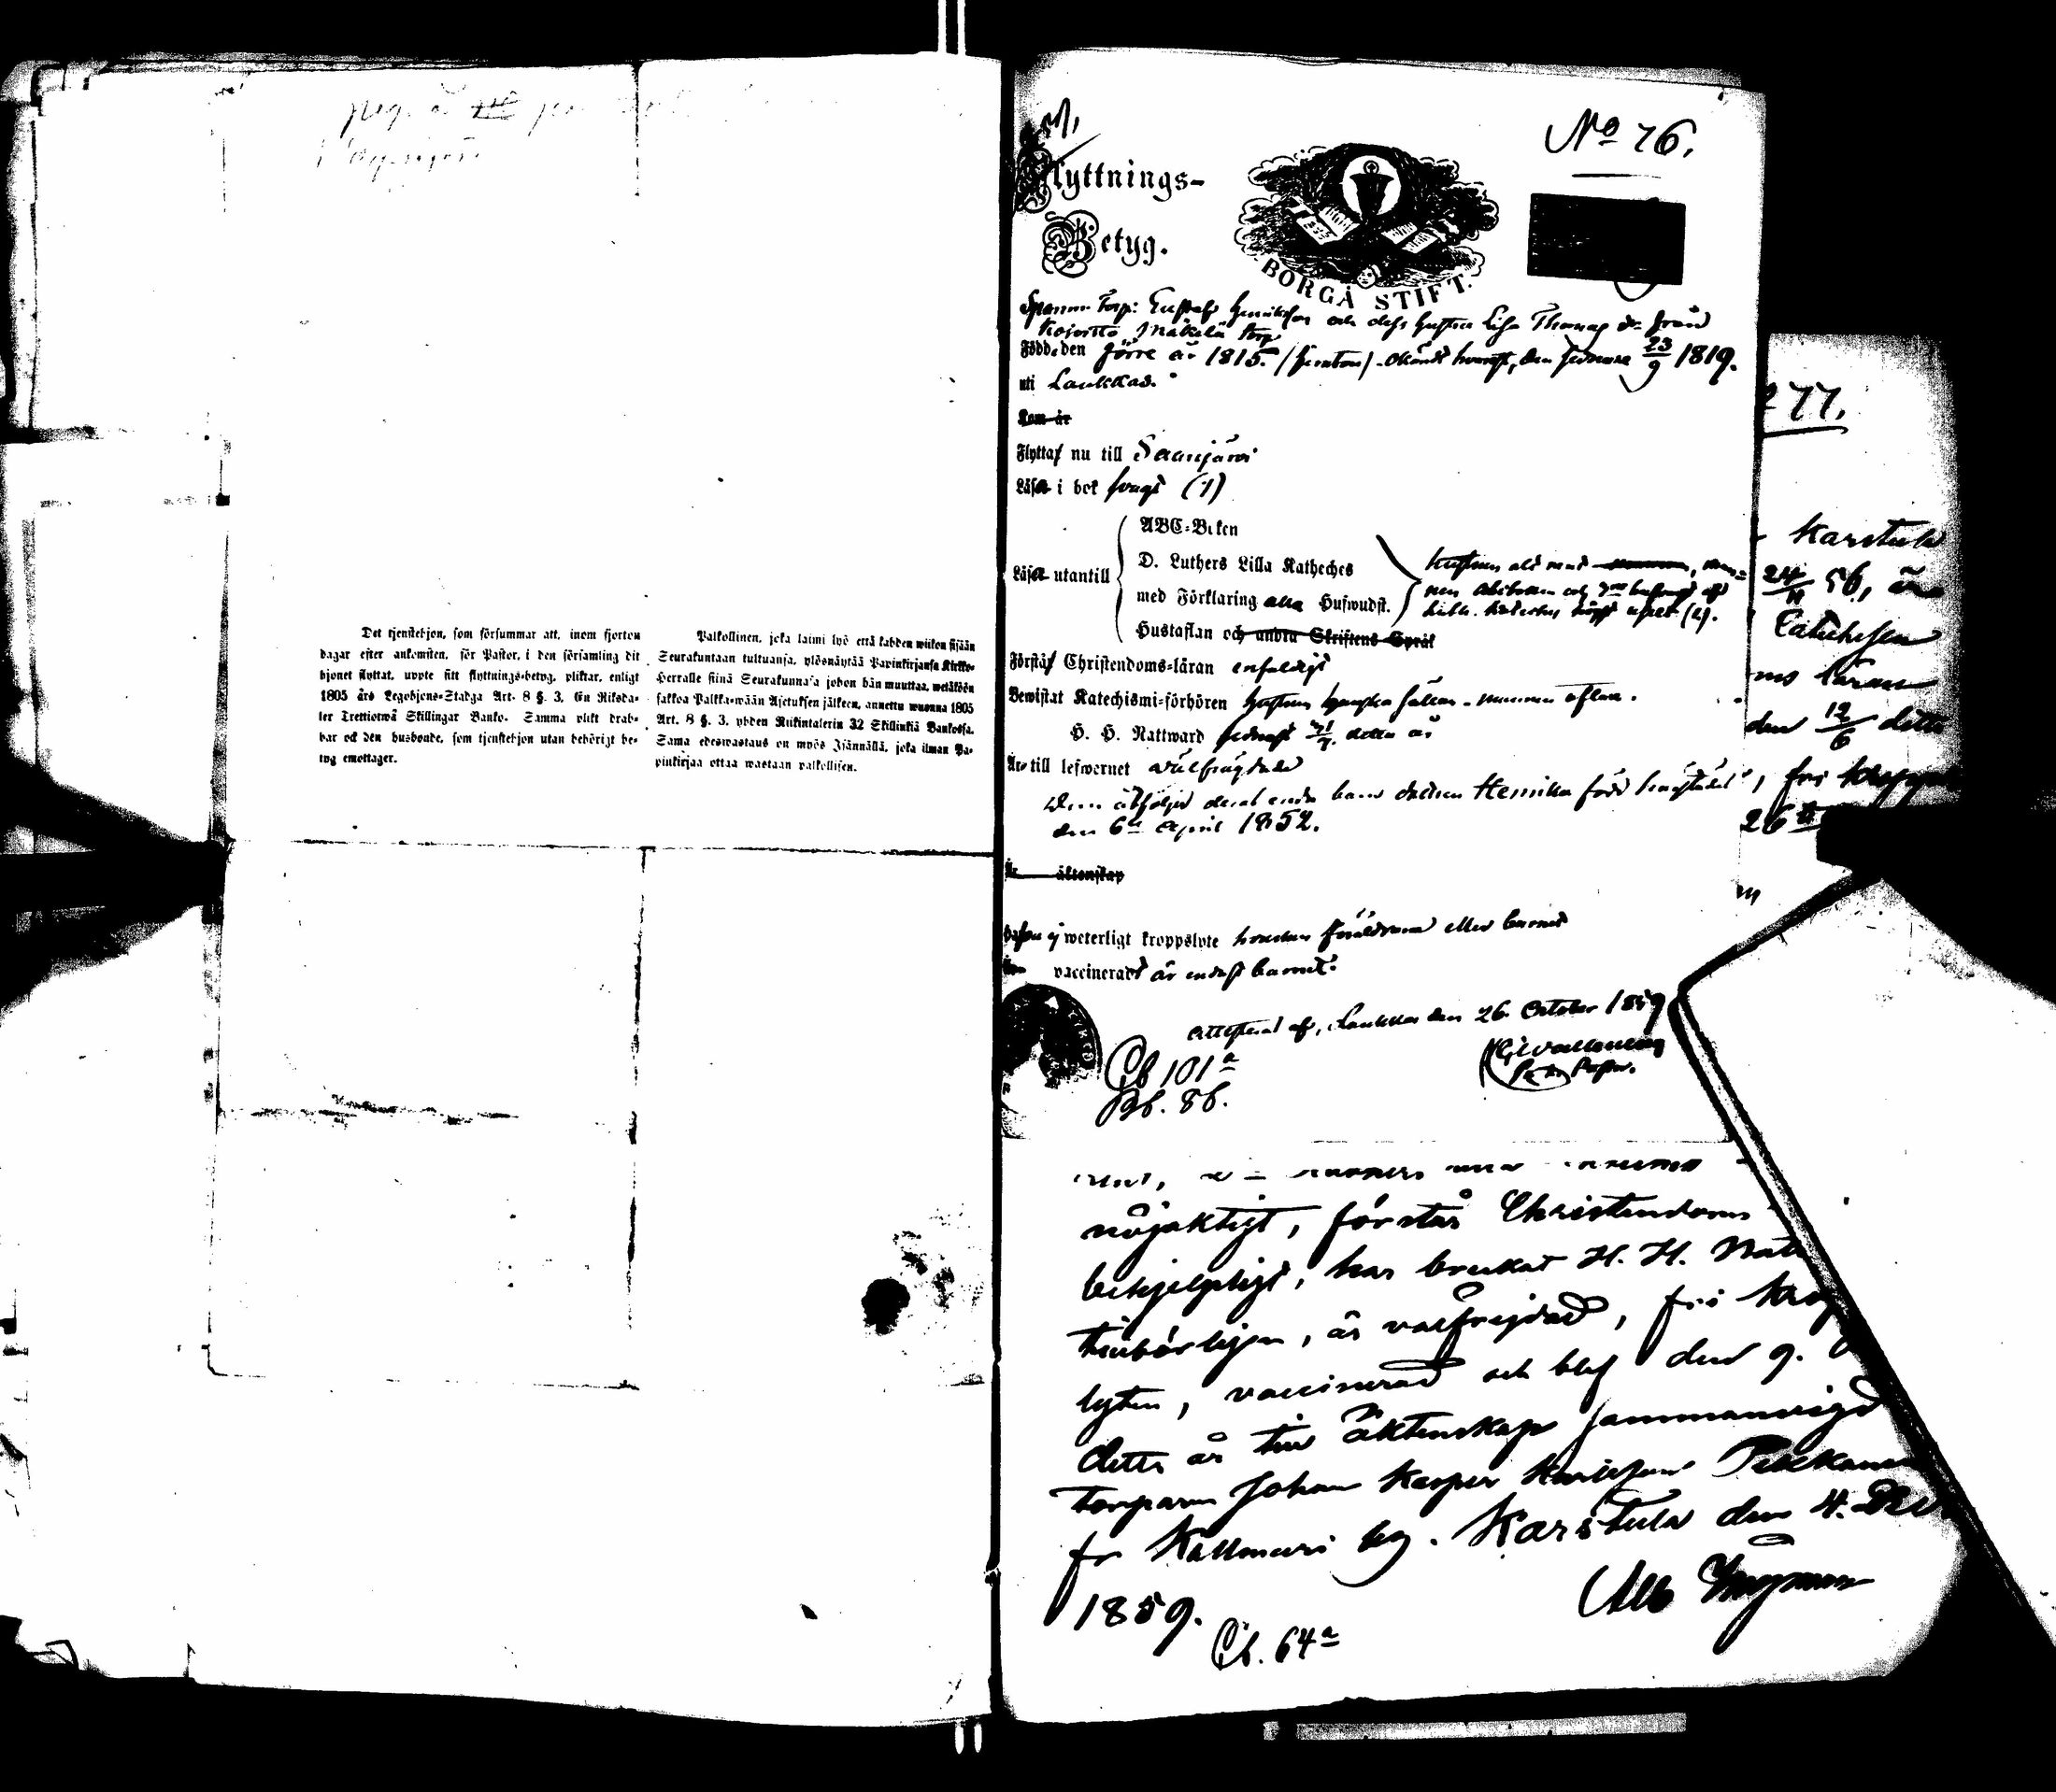 Det tjenstehjon, som försummar att, inom fjorton
dagar efter ankomsten, för Pastor, i den församling dit
hjonet flyttat, uppte sitt flyttnings-betyg, pliktar, enligt
1805 års Legohjons-Stadga Art. 8 §. 3, En Riksda-
ler Trettiotwå Skillingar Banko. Samma plikt drab-
bar ock den husbonde, som tjenstehjon utan behörigt be-
tyg emottager.
Palkollinen, joka laimi lyö että kahden wiikon sisään
Seurakuntaan tultuansa, ylösnäytää Papinkirjansa Kirkko-
herralle siinä Seurakunnasa johon hän muuttaa, wetäköön
sakkoa Palkka-wään Asetuksen jälkeen, annettu wuonna 1805
Art. 8 §. 3, yhden Riikintalerin 32 Skillinkiä Bankossa.
Sama edeswastaus on myös Isännällä, joka ilman Pa-
pinkirjaa ottaa wastaan palkollisen.
No 76.
Flyttnings-
Betyg.
BORGÅ STIFT.
Gustaf Henriksson och dess hustru Lisa Thomas dr från
Mäkelä torp
Född den förre år 1815. den sednare 23/9 1819.
uti Laukkas.
Kom år
Flyttat nu till Saarijärvi
Läsa i bok svagt (1)
Läsa utantill
ABC-Boken
D. Luthers Lilla Katheches
med Förklaring alla Huswudst.
Hustaflan och andra Skriftens Språk
Förstå Christendoms-läran enfaldigt
Bewistat Katechismi-förhören hustrun
H. H. Nattward sednast detta år
Är till lefwernet wälfrägdade
Dem åtföljer deras enda barn dottren Henrika född
den 6te April 1852.
Äktenskap
weterligt kroppslyte hwarken föräldrarne eller barnet
vaccinerad är endast barnet.
Attesterad af, Laukkas den 26. October 1859
Pastor.
Cb 101a
Bb. 86.
277.
Karstula
24/11 56, är
Catechesen
ms läran
den 12/6 detta
, fri kropps
26
nöjaktigt, förstår Christendoms
behjelpligt, har brukat H. H. Natt
tillbörligen, är välfrejdad, fri krop
lyten, vaccinerad och blef den 9.
detta år till äktenskap sammanvigd
torparen Johan Kasper Karlsson Pekkanen
fr Kallmari by. Karstula den 4. Dec
1859.
Alb Ingman
Cb. 64a